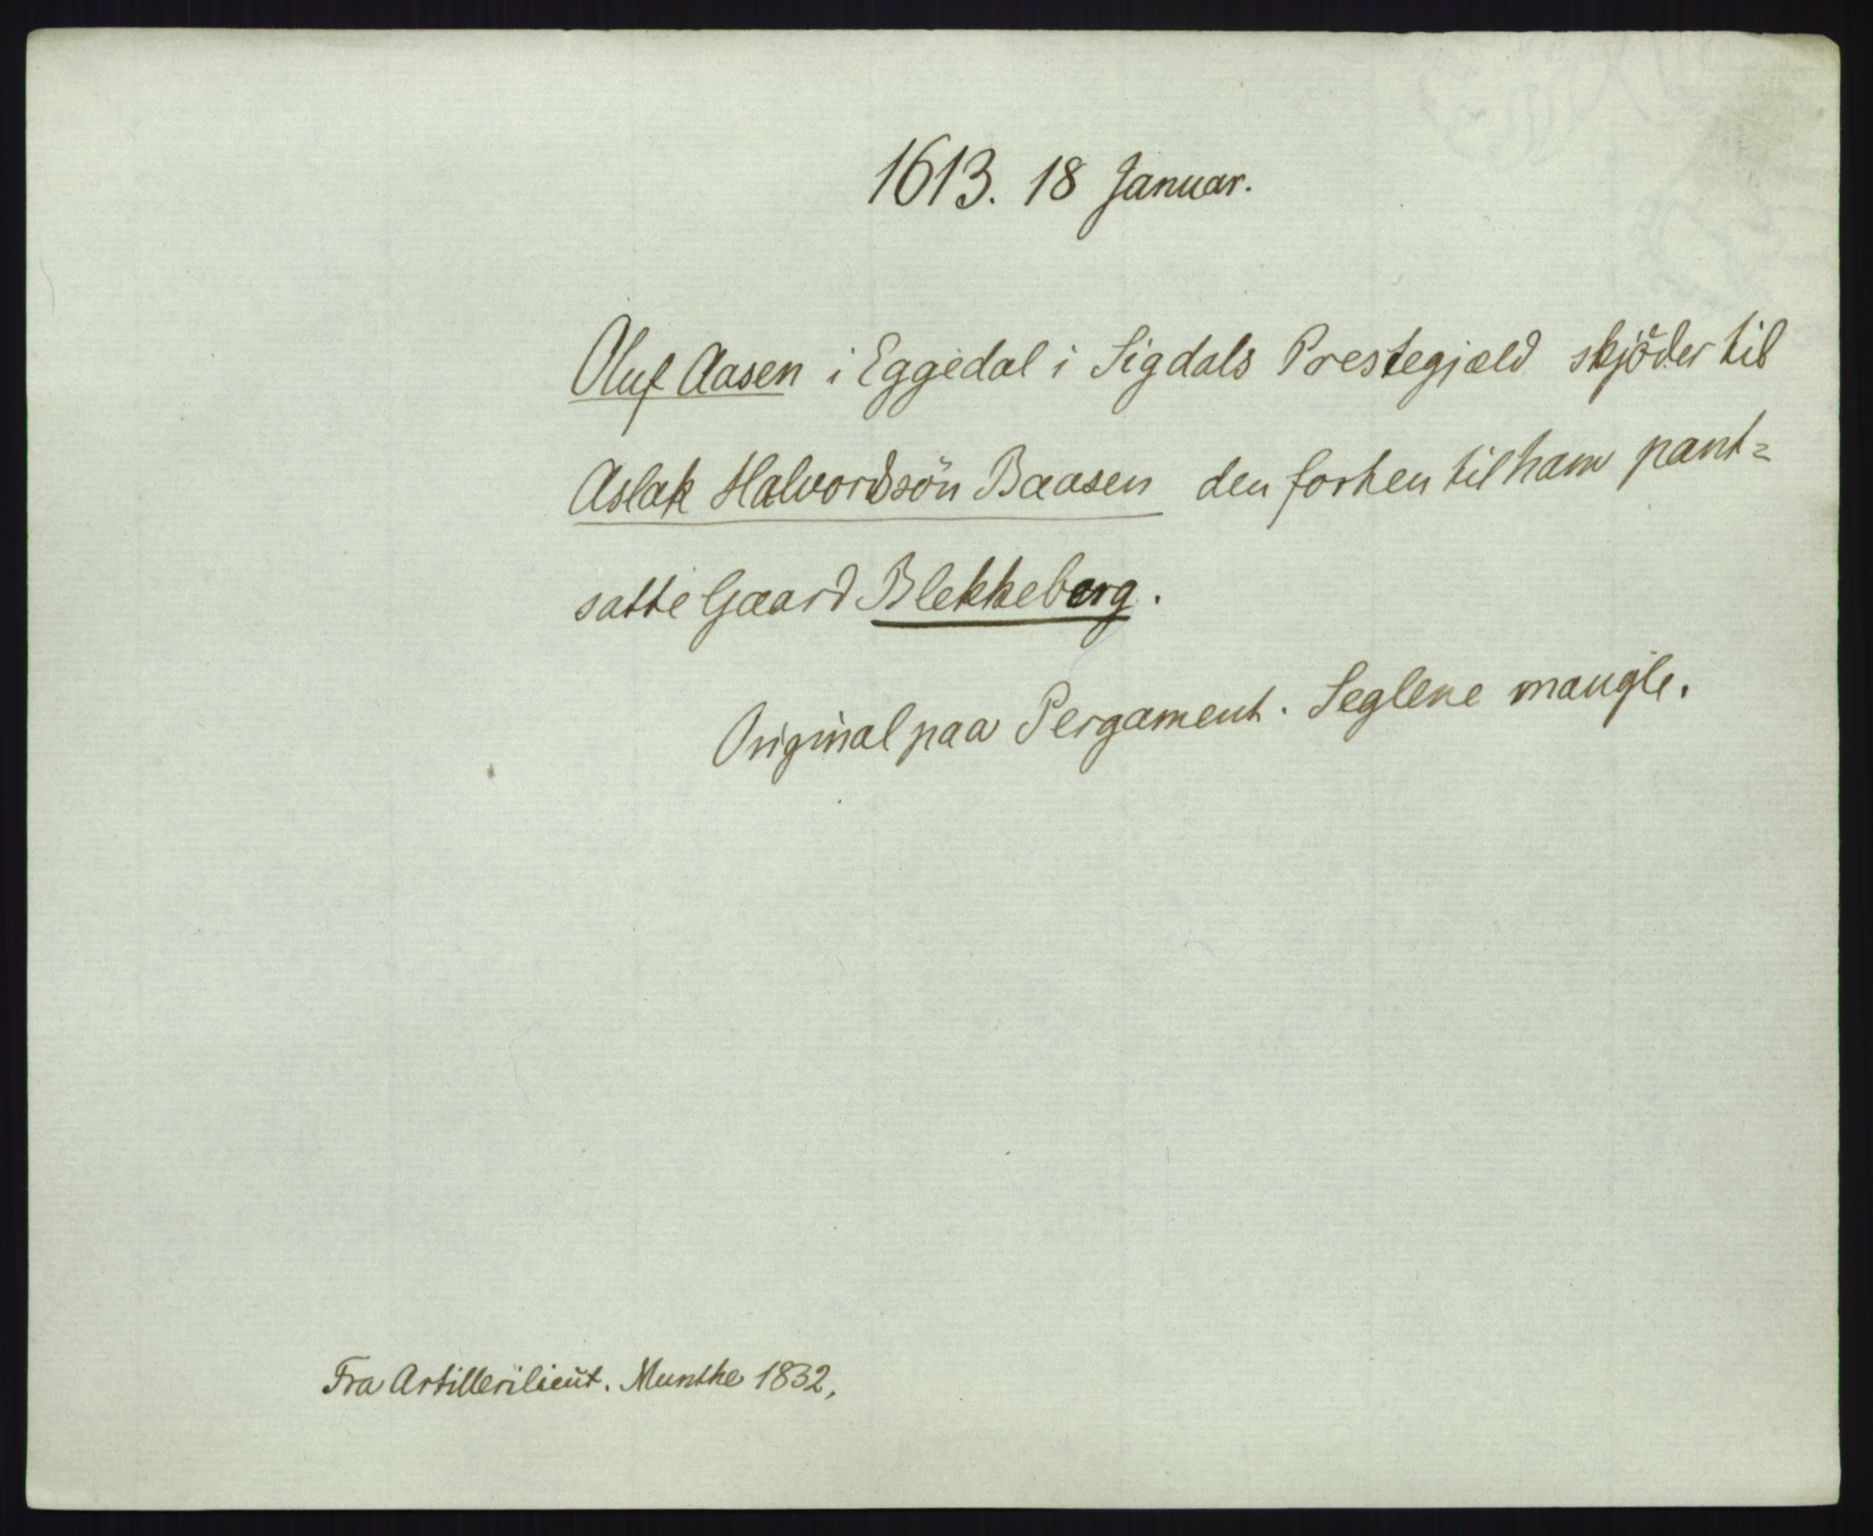 1613. 18 Januar.
Oluf Aasen i Eggedal i Sigdals Prestegjæld skjöder til
Aslak Halvordsön Baasen den forhen til ham pant=
satte Gaard Blekkeberg.
Original paa Pergament. Seglene mangle.
Fra Artillerilieut. Munthe 1832,